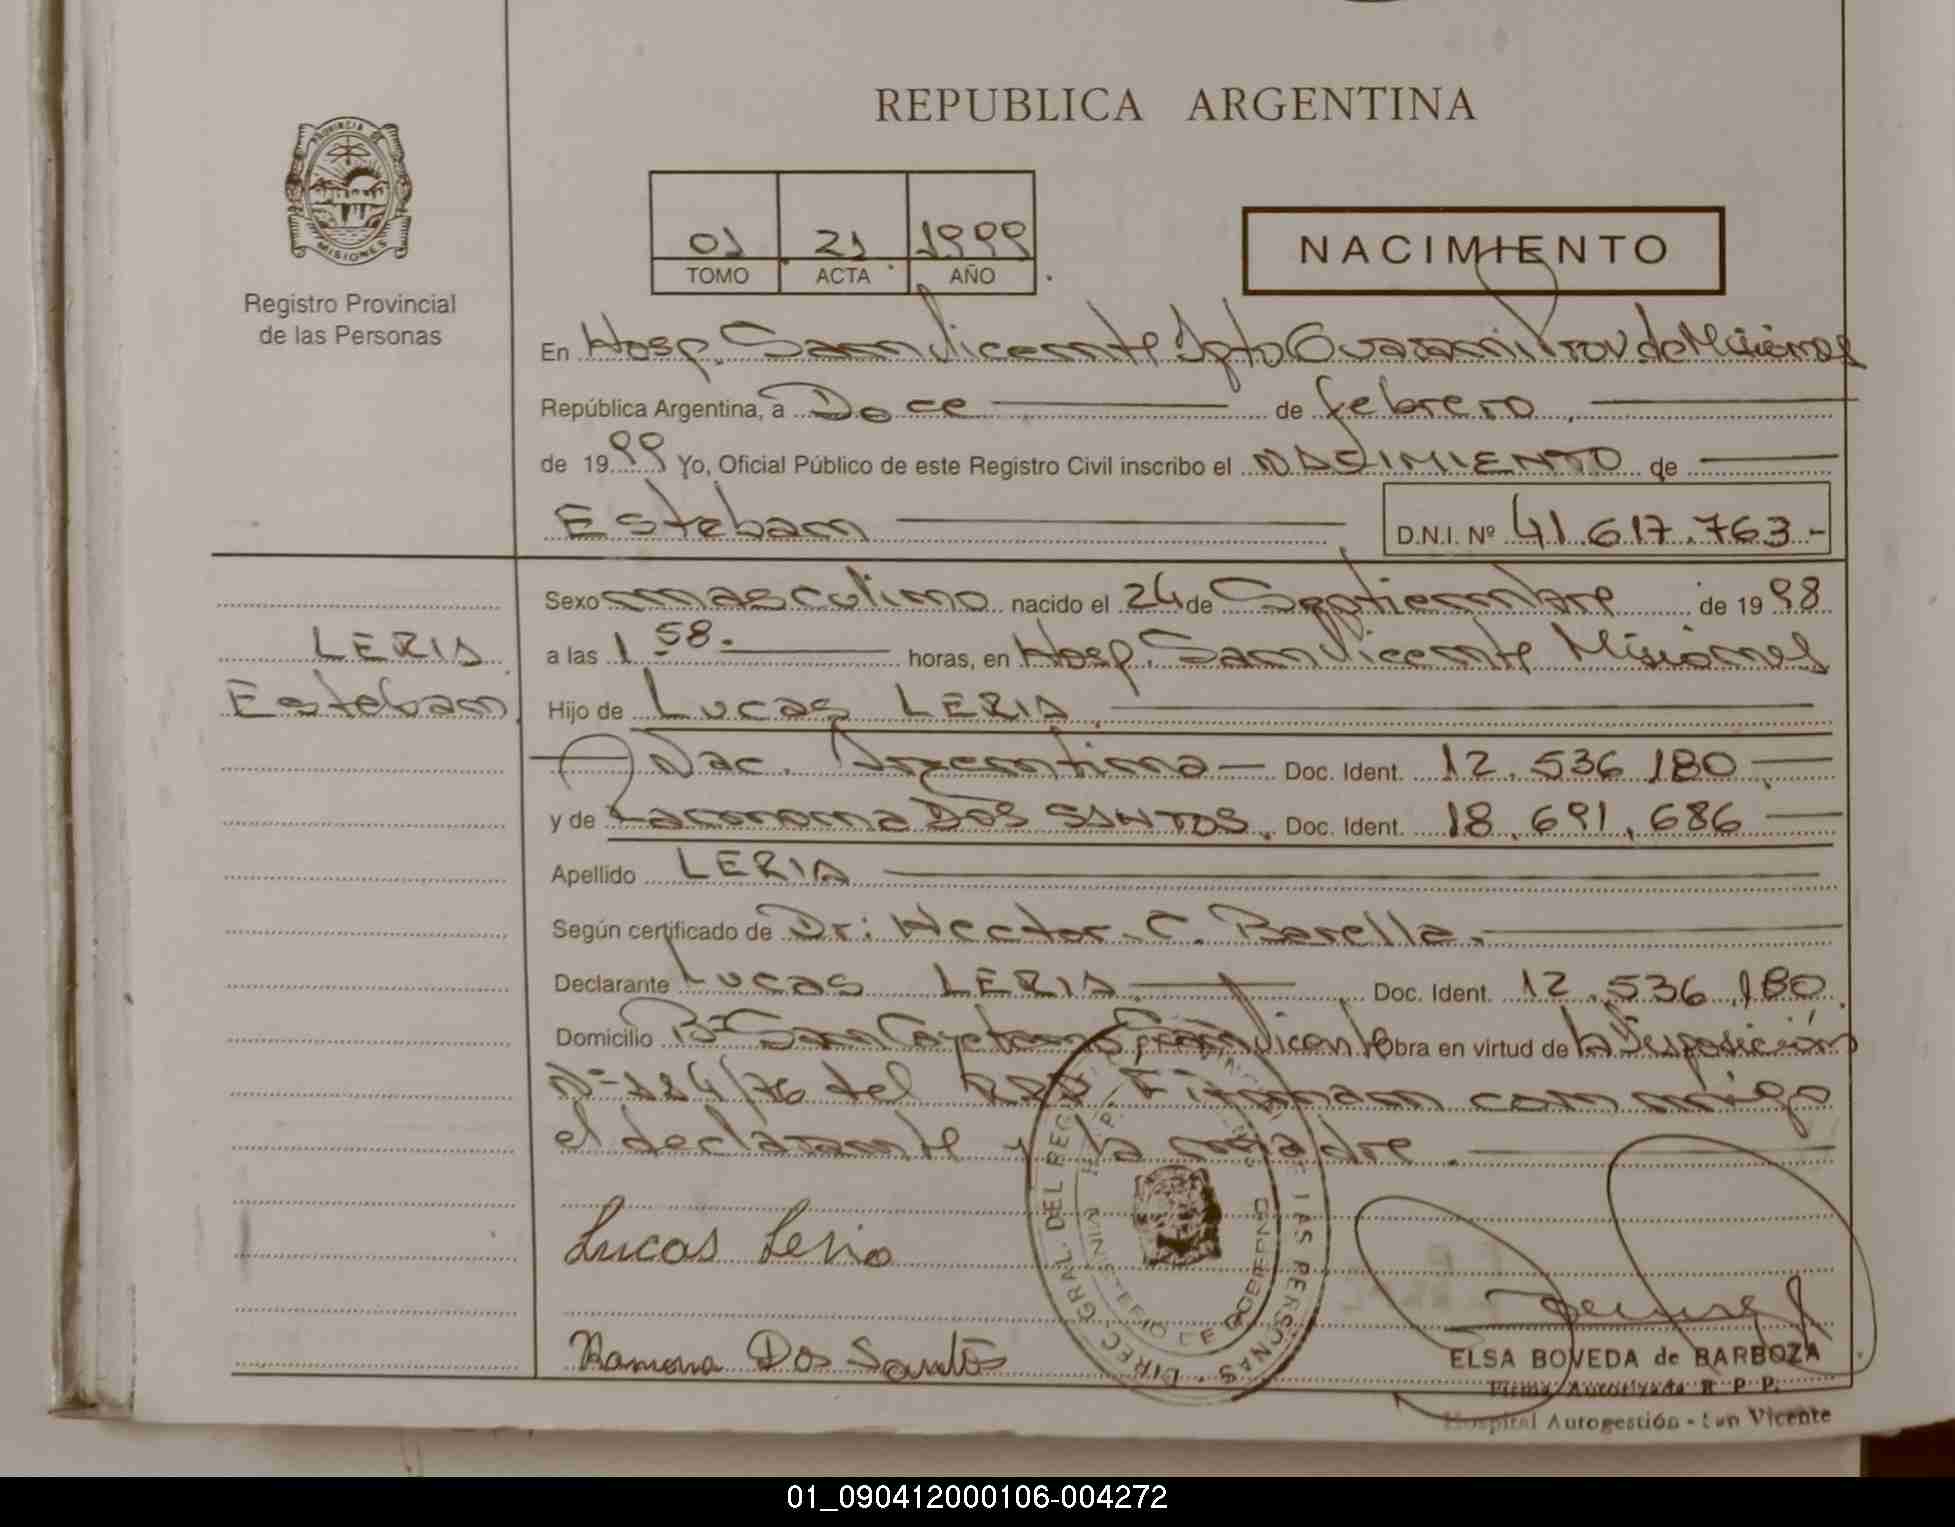 PROVINCIA DE
MISIONES
Registro Provincial
de las Personas
REPUBLICA ARGENTINA
01 21 1999
TOMO ACTA AÑO
NACIMIENTO
En Hosp. San Vicente Dpto Guarani Prov de Misiones
República Argentina, a Doce de febrero
de 1999 Yo, Oficial Público de este Registro Civil inscribo el NACIMIENTO de
Esteban D.N.I. Nº 41.617.763.-
LERIA
Esteban
Sexo masculino nacido el 24 de Septiembre de 1998
a las 1 58. horas, en Hosp. San Vicente Misiones
Hijo de Lucas LERIA
Nac. Argentina Doc. Ident. 12.536.180
y de Ramona DOS SANTOS. Doc. Ident. 18.691.686
Apellido LERIA
Según certificado de Dr: Hector C. Barella.
Declarante Lucas LERIA Doc. Ident. 12.536.180
Domicilio Bº San Cayetano San Vicente Obra en virtud de la Disposición
Nº 124/76 del RPP. Firman conmigo
el declarante y la madre.
DIREC. GRAL. DEL REG. LAS PERSONAS
MINISTERIO DE GOBIERNO
Lucas Leria
Ramona Dos Santos
ELSA BOVEDA de BARBOZA
Firma Autorizada R P P.
Hospital Autogestión - San Vicente
01_090412000106-004272